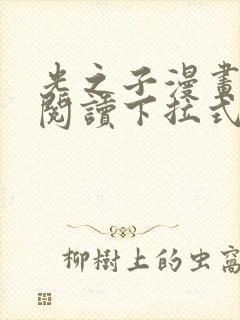 光之子漫畫
閱讀下拉式
柳樹上的虫窩